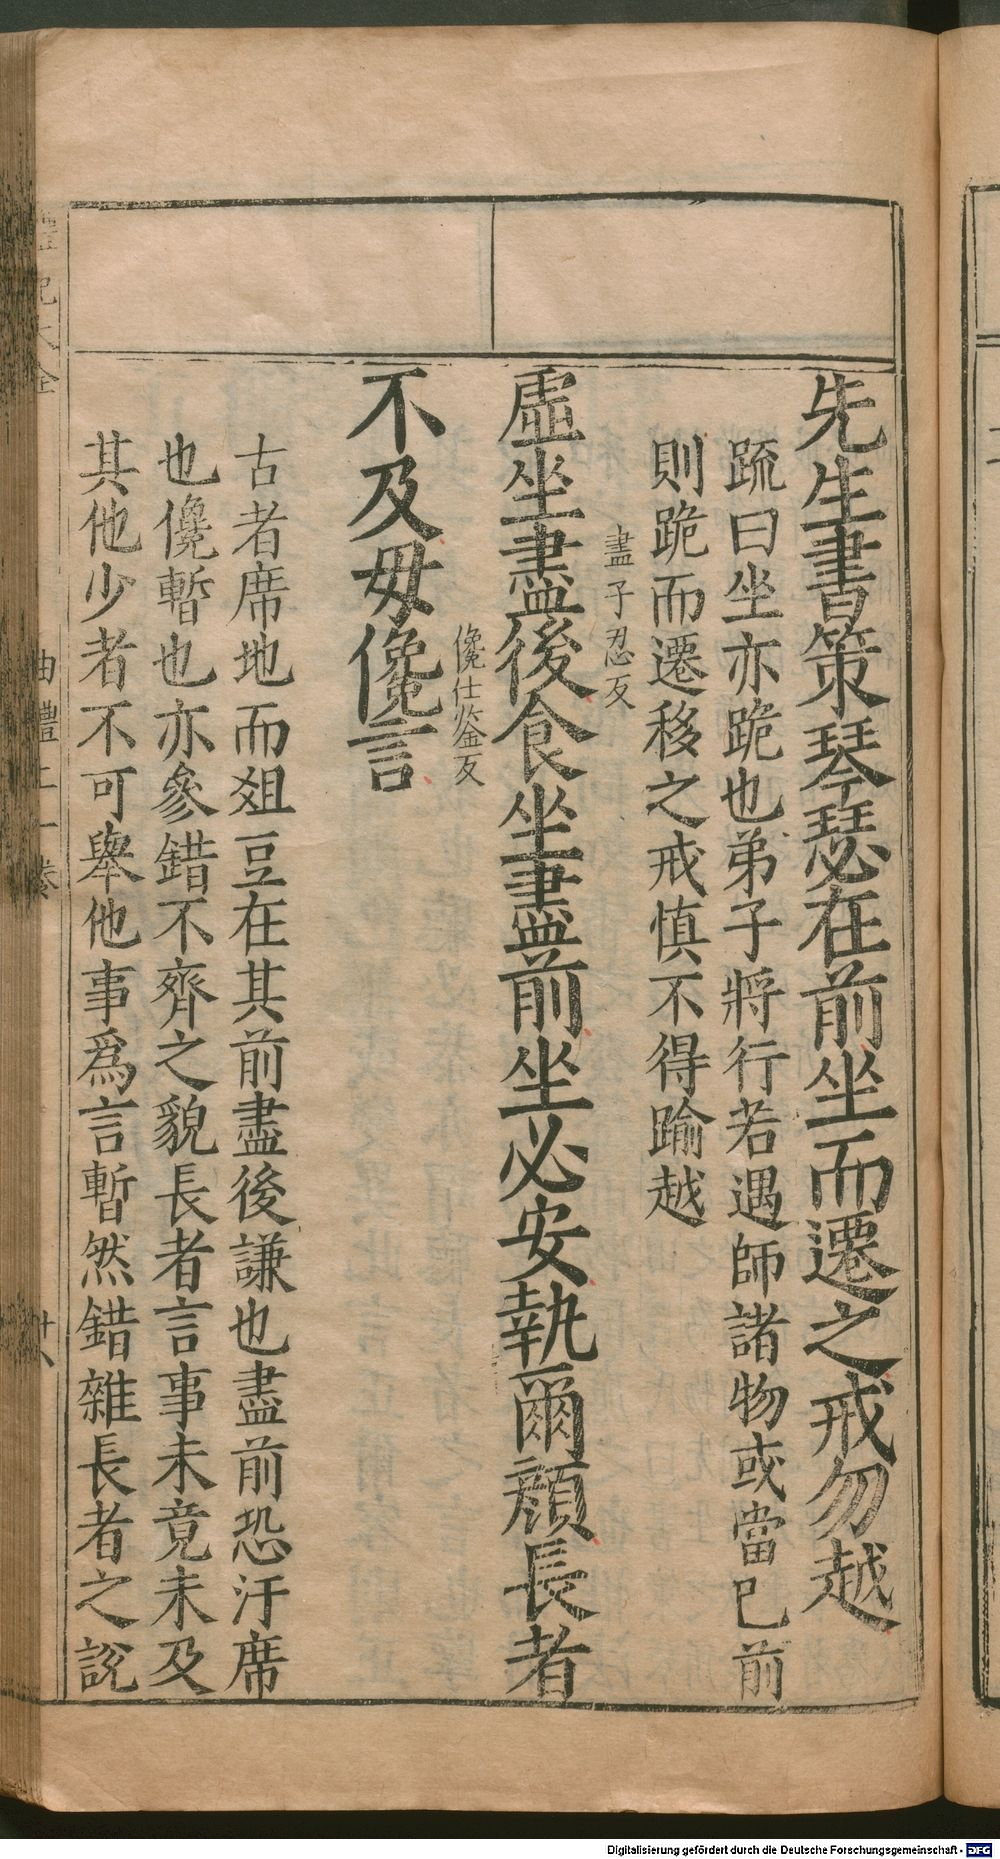 先生書策琴瑟在前坐而遷之戒勿越
疏曰坐亦跪也弟子將行若遇師諸物或當已前
則跪而遷移之戒慎不得踰越
盡子忍反
虛坐盡後食坐盡前坐必安執爾顏長者
儳仕鉴反
不及毋儳言
古者席地而俎豆在其前盡後謙也盡前恐汙席
也儳暫也亦參錯不齊之貌長者言事未竟未及
其他少者不可舉他事爲言暫然錯雜長者之說
曲禮上一卷
廿八
Digitalisierung gefördert durch die Deutsche Forschungsgemeinschaft - DFG